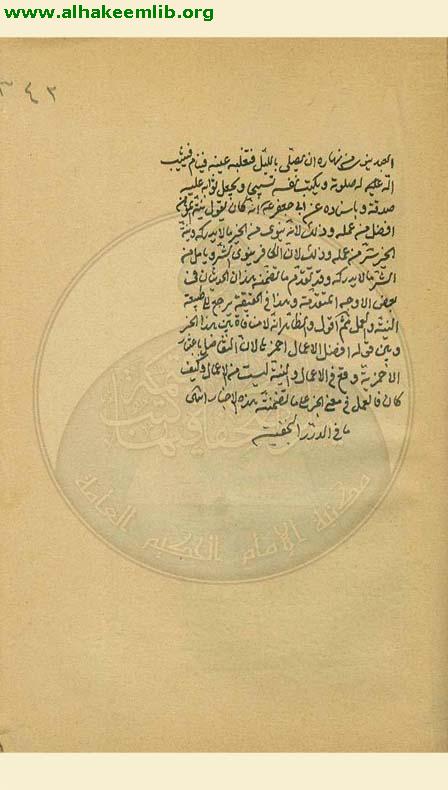 www.alhakeemlib.org
٣٤٢
العبد ينوى من نهاره ان يصلّى بالليل فتغلبه عينه فينام فيثبت
الله عليه له صلوته ويكتب نفسه تسبيح ويجعل نومه عليه
صدقة وباسناده عن ابى جعفر ع انه كان يقول نيّة المؤمن
افضل من عمله وذلك لانه ينوى من الخير مالا يدركه ونية
الكافر شر من عمله وذلك لان الكافر ينوى الشر ويامل من
الشر مالا يدركه وقد تقدم ما تضمنه هذان الحديثان فى
بعض الاوجه المتقدمة وهذا فى الحقيقة يرجع الى طبيعة
النية والعمل ثم اقول والظاهر انه لا منافاة بين هذا الخبر
وبين قوله افضل الاعمال احمزها لان التفاضل باعتبار
الاحمزية وقع فى الاعمال والنية ليست من الاعمال وكيف
كان فالعمل فى معنى الخبر على ما تضمنته هذه الاخبار انتهى
ما فى الدرر النجفية
مكتبة الإمام الحكيم العامة